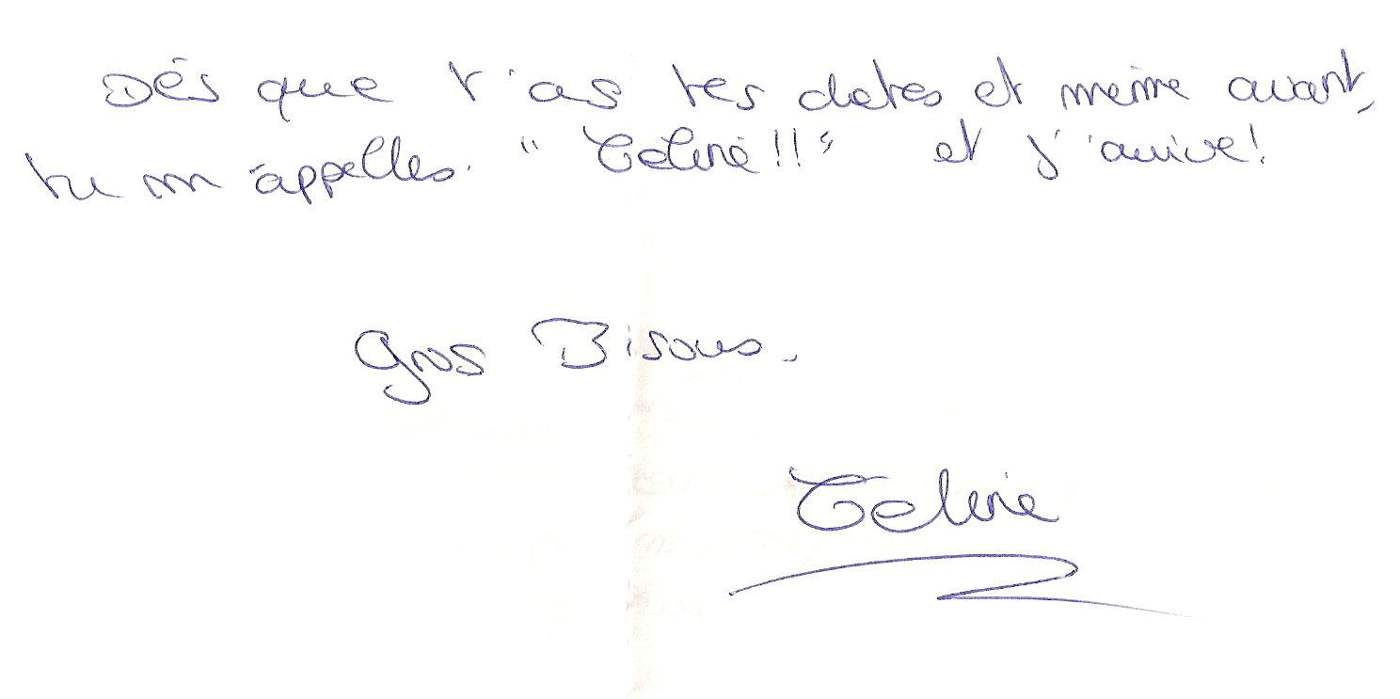 Dès que t'as tes dates et même avant,
tu m'appelles. "Céline!!" et j'arrive!
Gros Bisous.
Céline